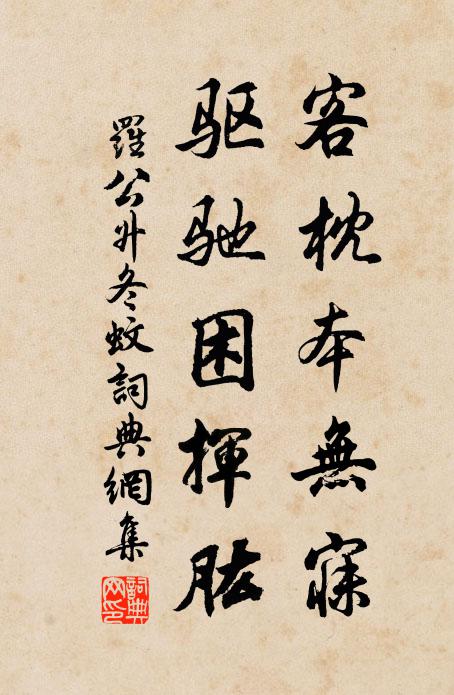 客枕本無寐
驱驰困揮肱
羅公升冬蚊詞典網集
詞典网印